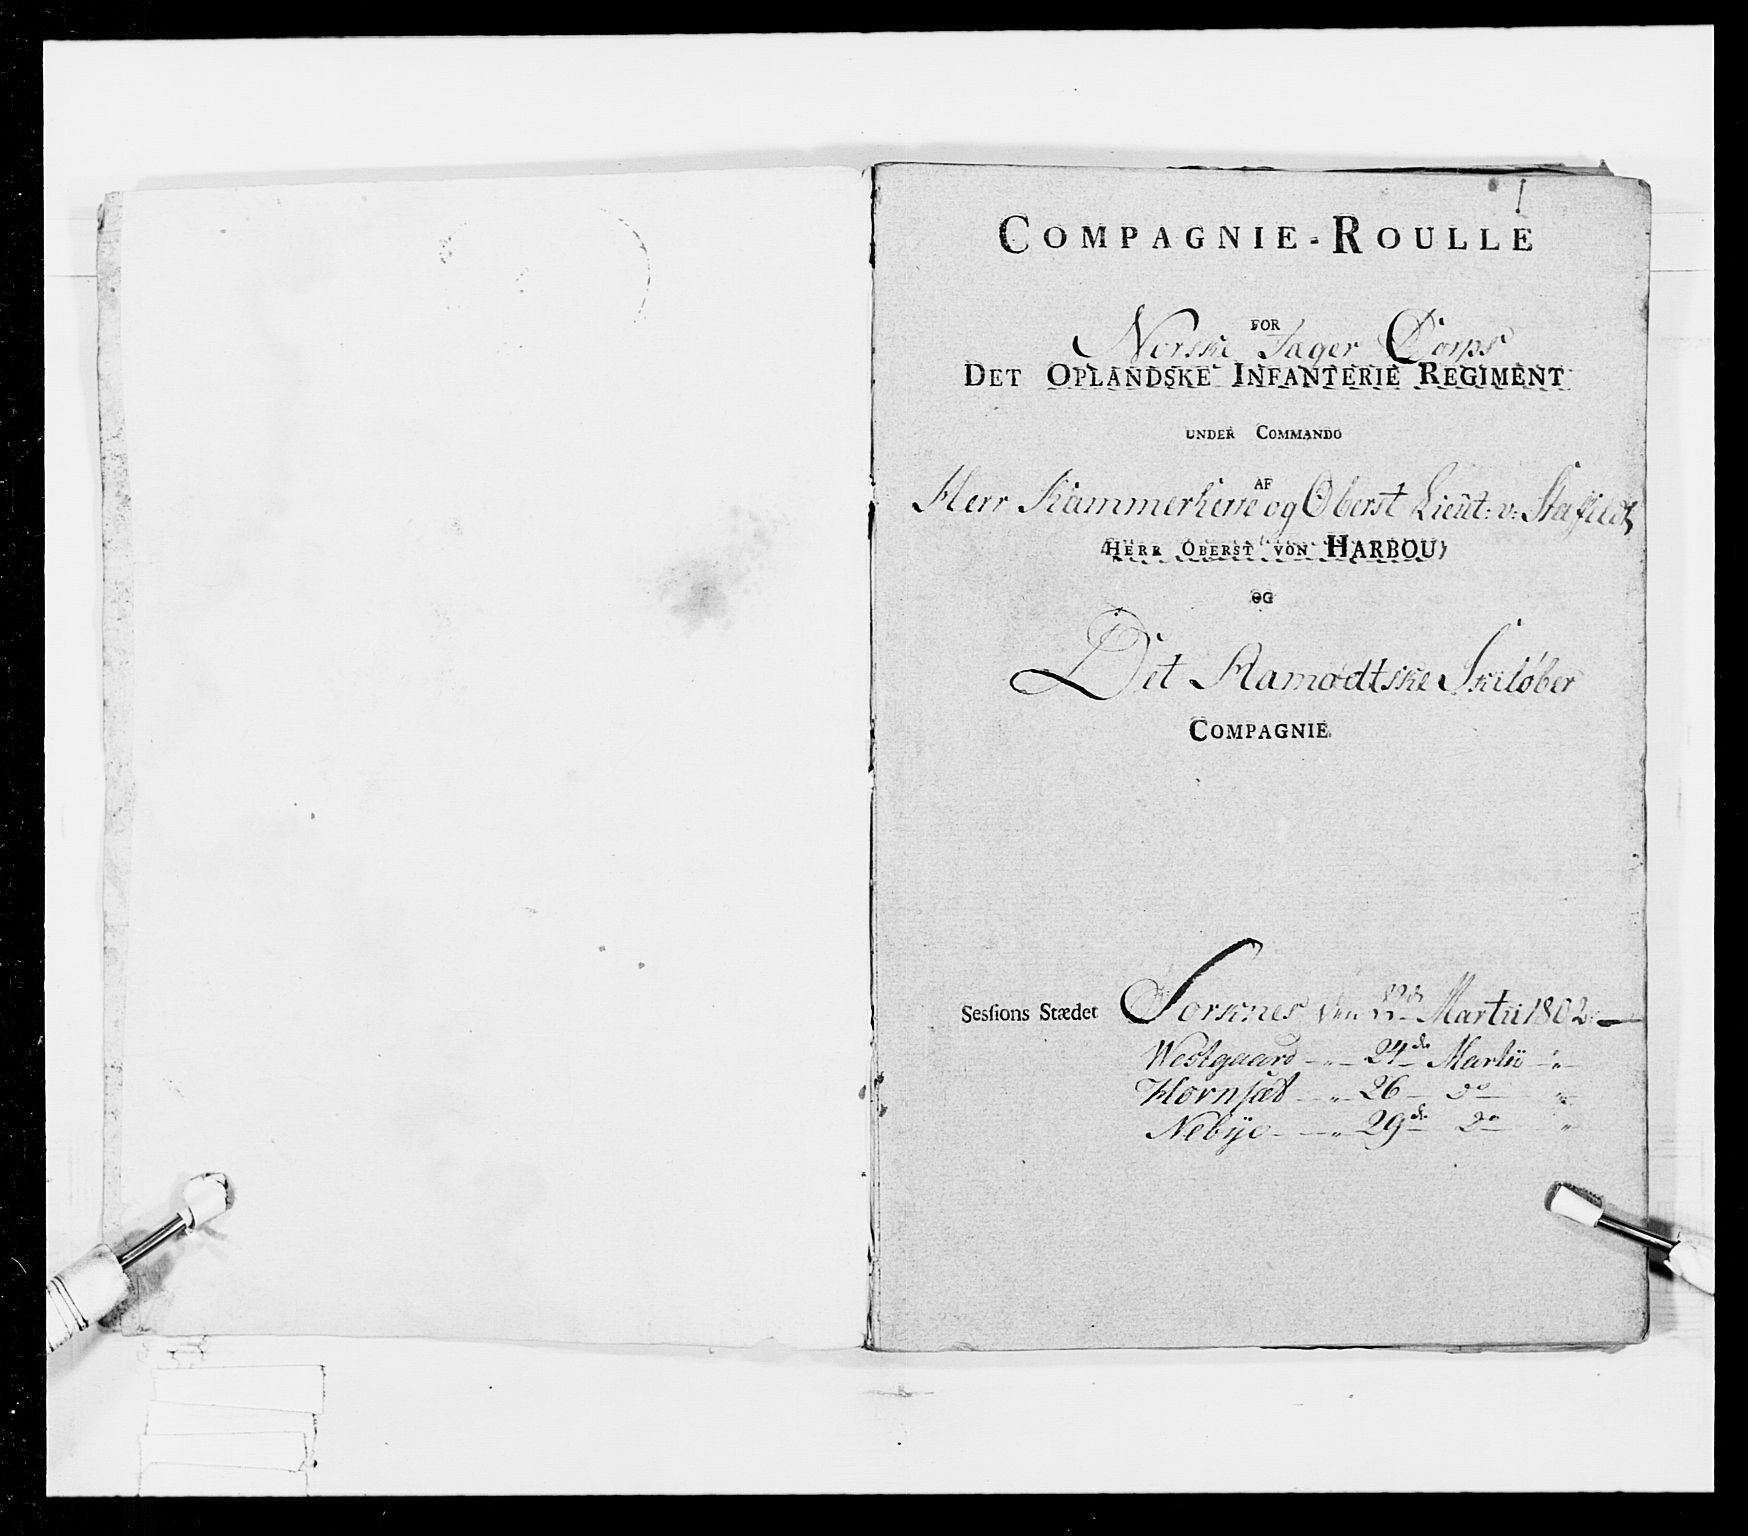 COMPAGNIE-ROULLE
FOR
Norske Jæger Corps
DET OPLANDSKE INFANTERIE REGIMENT
UNDER COMMANDO
AF
Herr Kammerherre og Oberst Lieut: v: Staffeldt
HERR OBERST VON HARBOU,
OG
Det Aamodtske Skiløber
COMPAGNIE.
Sesſions Stædet Sorknes den 22de Martii 1802
Westgaard — " — 24de Martii — " —
Hornſæt — " — 26 — do — "
Nebÿe — — " — 29de do — "